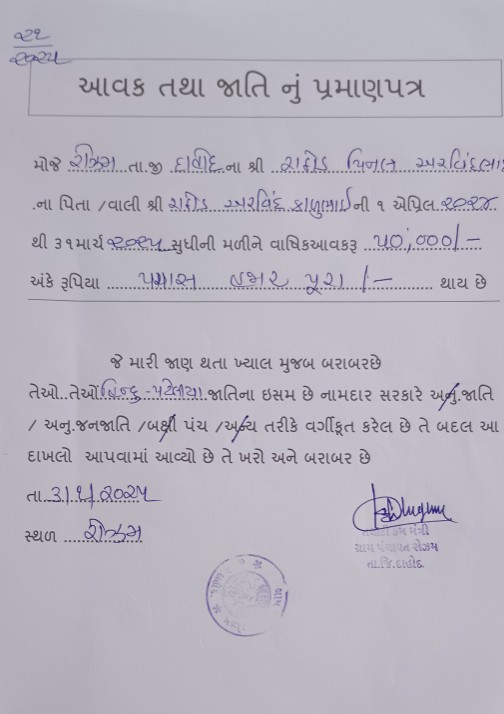 ૨૧
૨૦૨૫
આવક તથા જાતિ નું પ્રમાણપત્ર
મોજે રોઝમ તા.જી દાહોદ ના શ્રી રાઠોડ પિનલ અરવિંદભા
.ના પિતા /વાલી શ્રી રાઠોડ અરવિંદ કાળુભાઇ ની ૧ એપ્રિલ ૨૦૨૪
થી ૩૧માર્ચ ૨૦૨૫ સુધીની મળીને વાષિકઆવકરૂ ૫૦,૦૦૦/-
અંકે રૂપિયા પચાસ હજાર પૂરા /- થાય છે
જે મારી જાણ થતા ખ્યાલ મુજબ બરાબરછે
તેઓ..તેઓ હિન્દુ-પટેલીયા જાતિના ઇસમ છે નામદાર સરકારે અનુ.જાતિ
/ અનુ.જનજાતિ /બક્ષી પંચ /અન્ય તરીકે વર્ગીકૃત કરેલ છે તે બદલ આ
દાખલો આપવામાં આવ્યો છે તે ખરો અને બરાબર છે
તા 3/1/૨૦૨૫
સ્થળ રોઝમ
મંત્રી
ગ્રામ પંચાયત રોઝમ
તા.જિ.દાહોદ.